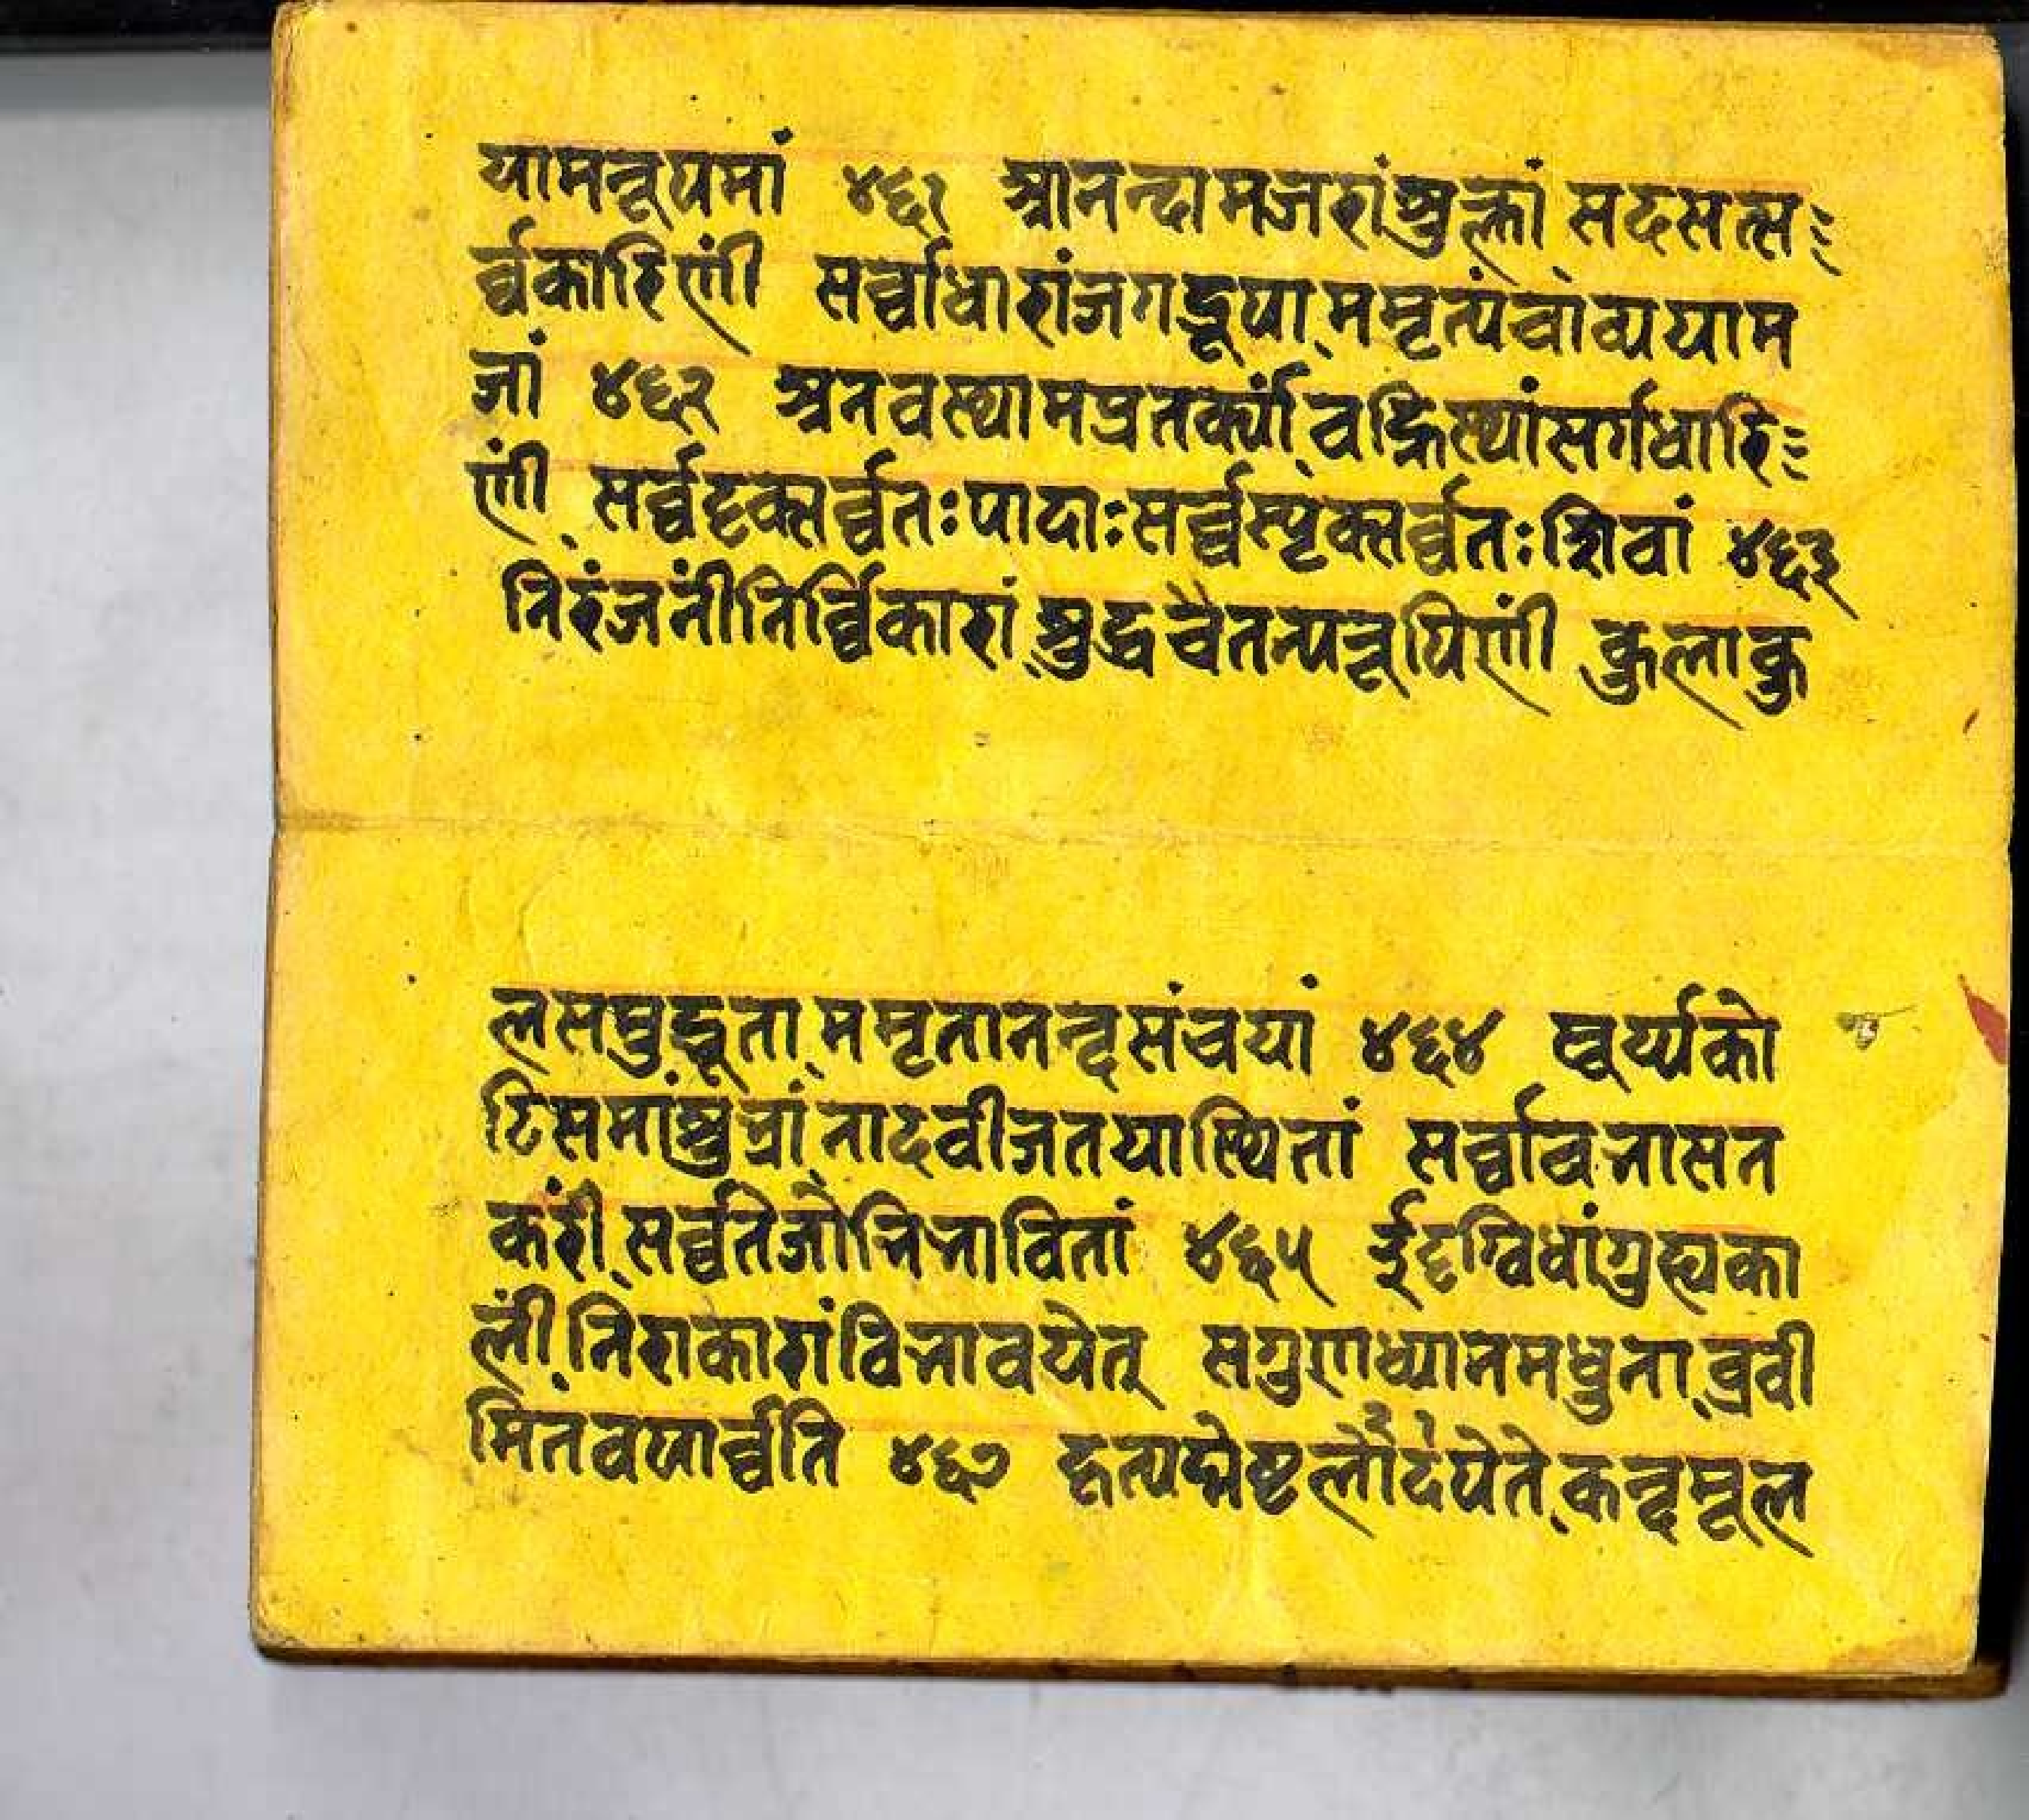 यामनूपमां ४६१ आनन्दामजरांशुक्लां सदसत्स
र्व्वकारिणीं सर्व्वाधारांजगद्रूपाममृत्यंचाव्ययाम
जां ४६२ अनवस्थामप्रतर्क्यां वह्निस्थांसर्गधारि
णीं सर्व्वदृक्सर्व्वतःपादाःसर्व्वस्पृक्सर्व्वतःशिवां ४६३
निरंजनींनिर्व्विकारां शुद्धचैतन्यरूपिणीं कुलाकु
लसमुद्भूता ममृतानन्दसंचयां ४६४ सूर्य्यको
टिसमांशुभ्रां नादवीजतयास्थितां सर्व्वावभासन
करीं सर्व्वतेजोभिभावितां ४६५ ईदृग्विधांगुह्यका
लीं निराकारांविभावयेत् सगुणध्यानमधुना ब्रवी
मितवपार्व्वति ४६७ हृत्पद्मेष्टलौदपेते कन्दमूल